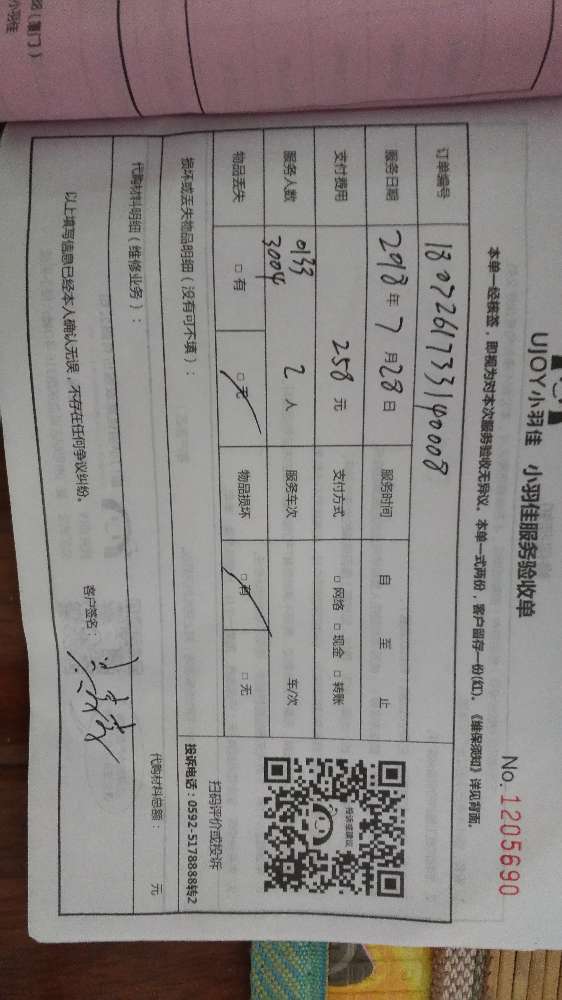 UJOY小羽佳 小羽佳服务验收单
No. 1205690
本单一经核签，即视为对本次服务验收无异议。本单一式两份，客户留存一份(红)。《维保须知》详见背面。
订单编号 1807261733140008
服务日期 2018年7月28日 服务时间 自 至 止
支付费用 258元 支付方式 □网络 □现金 □转账
服务人数 0133 3004 2人 服务车次 车/次
物品丢失 □有 □无 物品损坏 □有 □无
扫码评价或投诉
投诉电话：0592-5178888转2
损坏或丢失物品明细（没有可不填）：
代购材料明细（维修业务）：
代购材料总额： 元
以上填写信息已经本人确认无误，不存在任何争议纠纷。
客户签名：